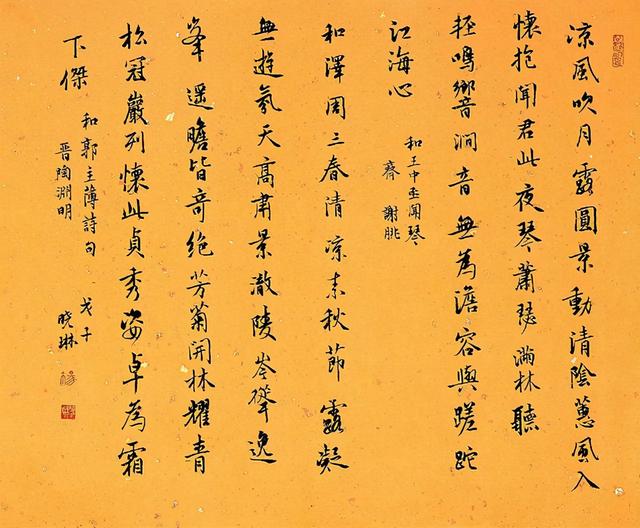 凉風吹月露圓景動清陰蕙風入
懷抱聞君此夜琴蕭瑟滿林聽
輕鳴響澗音無為澹容與蹉跎
江海心
和王中丞聞琴
齊 謝朓
和澤周三春清凉素秋節露凝
無遊氛天高肅景澈陵岑聳逸
峯遥瞻皆奇絶芳菊開林耀青
松冠巖列懷此貞秀姿卓為霜
下傑
和郭主薄詩句
晋陶淵明
戊子
晓琳